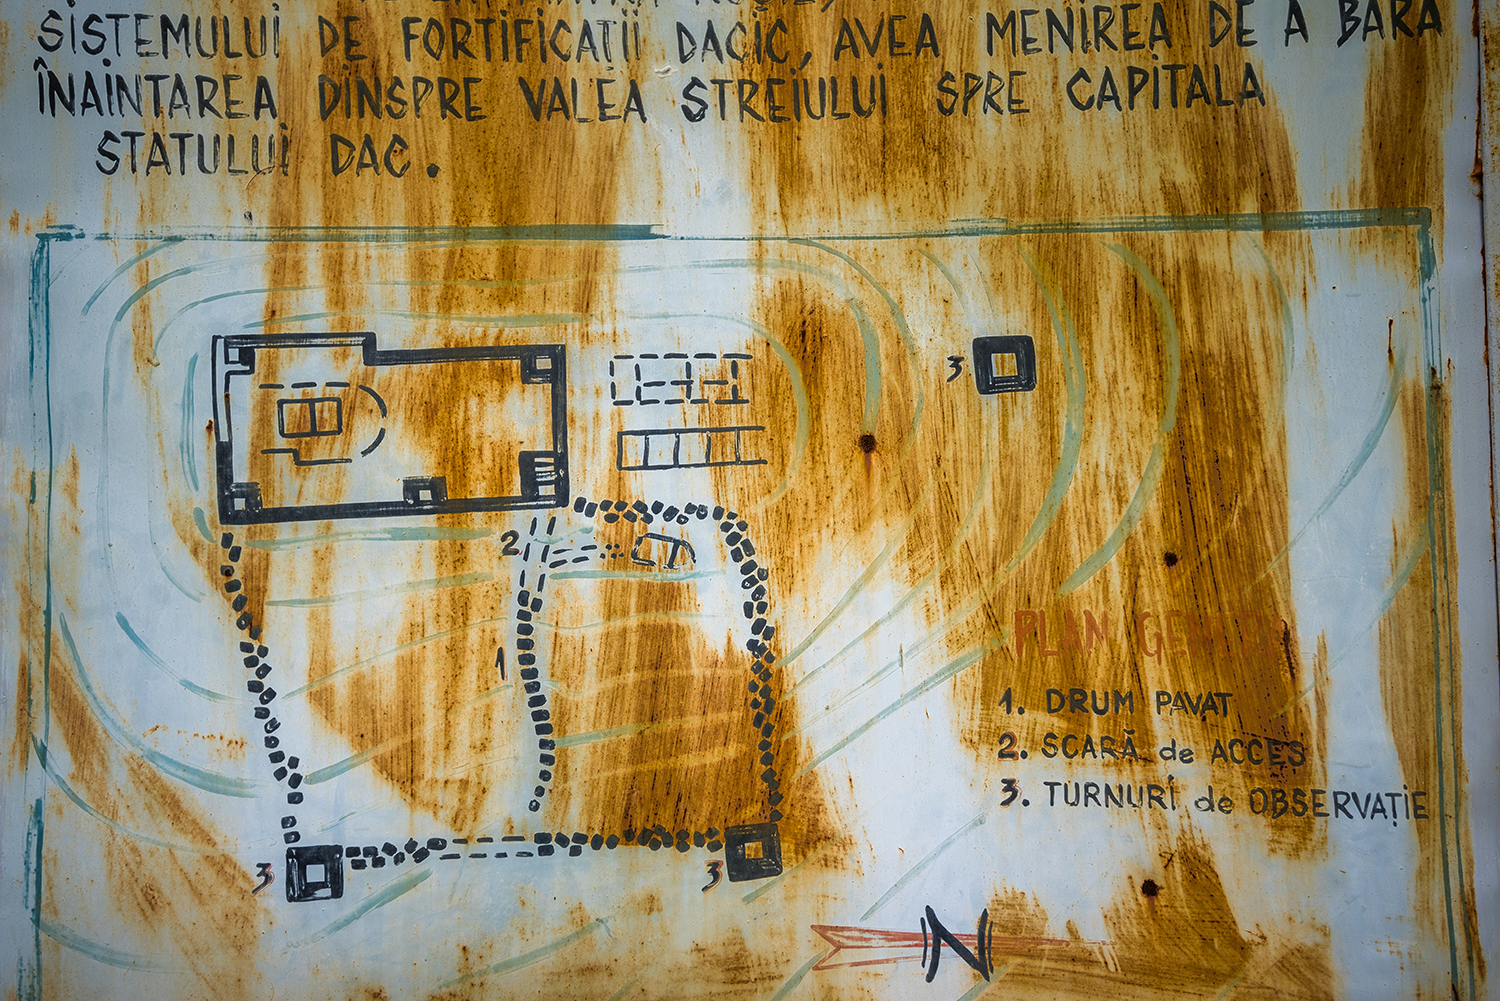 SISTEMULUI DE FORTIFICAŢII DACIC, AVEA MENIREA DE A BARA
ÎNAINTAREA DINSPRE VALEA STREIULUI SPRE CAPITALA
STATULUI DAC.
3
2
1
PLAN GENERAL
1. DRUM PAVAT
2. SCARĂ de ACCES
3. TURNURI de OBSERVAŢIE
3
3
N